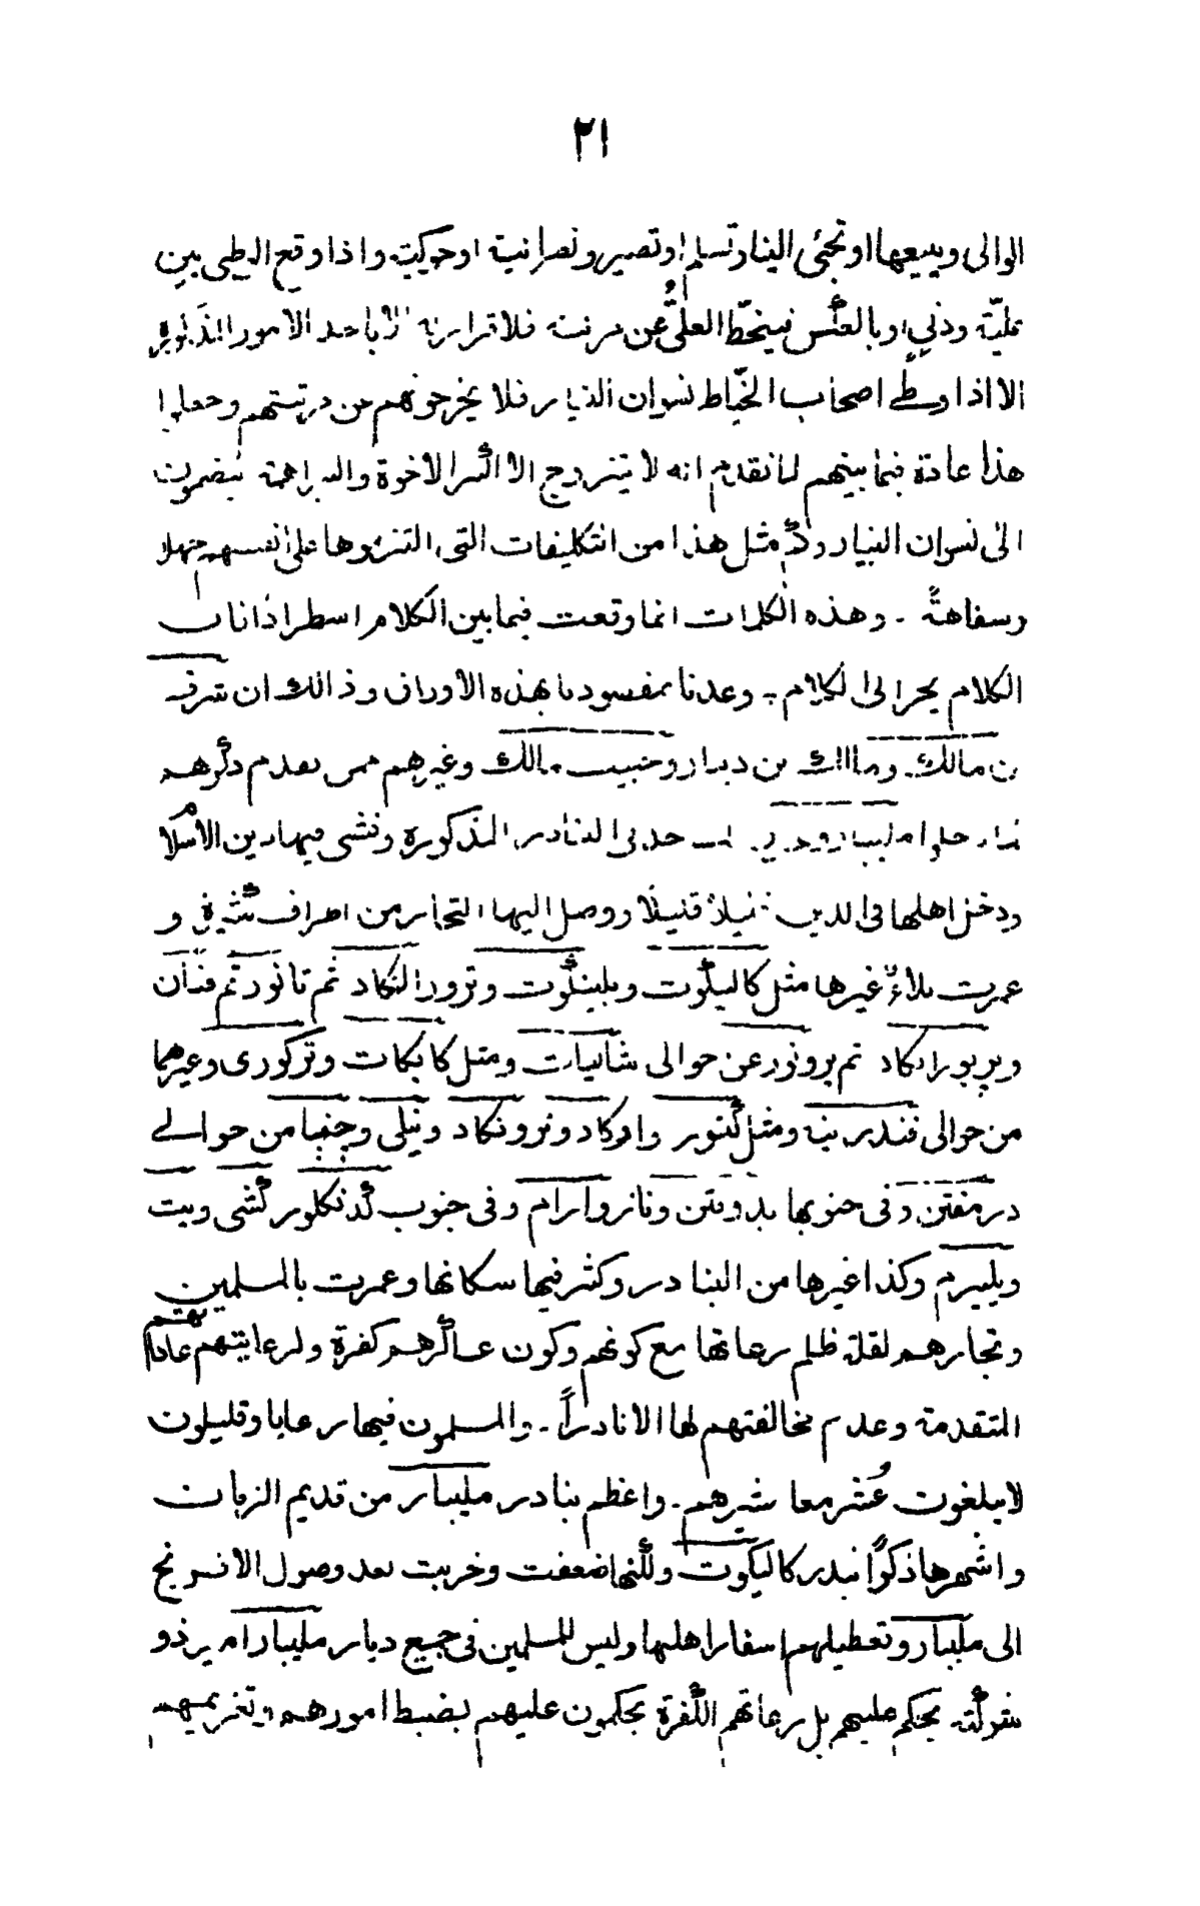 ٢١
الوالى ويبيعها او تجئى الينا وتسلم او تصير ونصرانية اوجوكية واذا وقع الوطى بين
عليّة ودنى او بالعكس فينحطّ العلىُّ عن مرتبته فلا قرار له الا باحد الامور المذكورة
الا اذا وطئ اصحاب الخيّاط نسوان النيار فلا يخرجونهم من مرتبتهم وجعلوا
هذا عادة فيما بينهم لما تقدم انه لا يتزوج الا اكبر الاخوة والبراهمة يفضون
الى نسوان النيار وكم مثل هذا من التكليفات التى التزموها على انفسهم جهلا
وسفاهةً ۔ وهذه الكلمات انما وقعت فيما بين الكلام اسطرادا فان
الكلام يجر الى الكلام ۔ وعدنا بمقسودنا بهذه الاوراق وذالك ان شرف
بن مالك ومالك بن دينار وحبيب بن مالك وغيرهم ممن تقدم ذكرهم
لما دخلوا مليبار وبنوا المساجد فى البنادر المذكورة وفشى فيها دين الاسلام
ودخل اهلها فى الدين قليلا قليلا ووصل اليها التجار من اطراف كثيرة و
عمرت بلاد غيرها مثل كاليكوت وبلينكوت وترورانكاد ثم تانور ثم فنان
وپرپورانكاد ثم برونور عن حوالى شاليات ومثل كابكات وتركورى وغيرهما
من حوالى فندرينه ومثل كننور وادكاد وترونكاد ونيلى وچنبا من حوالے
درمفتن وفى جنوبها بدوبتن ونانروارام وفى جنوب كدنكلور كشى وبيت
وپليپرم وكذا غيرها من البنادر وكثر فيها سكانها وعمرت بالمسلمين
وتجارهم لقلة ظلم رعاتها مع كونهم وكون عساكرهم كفرة ولرعايتهم عاداتهم
المتقدمة وعدم مخالفتهم لها الا نادراً ۔ والمسلمون فيها رعايا وقليلون
لا يبلغون عُشر معاشيرهم ۔ واعظم بنادر مليبار من قديم الزمان
واشهرها ذكرًا بندر كاليكوت ولكنها ضعفت وخربت بعد وصول الافرنج
الى مليبار وتعطيلهم اسفار اهلها وليس للمسلمين فى جميع ديار مليبار امير ذو
شوكة يحكم عليهم بل رعاتهم الكفرة يحكمون عليهم بضبط امورهم وتغريمهم